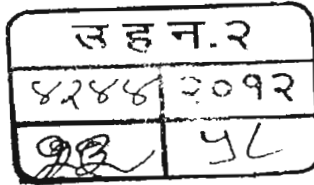 उ ह न.२
४२४४ २०१२
५८